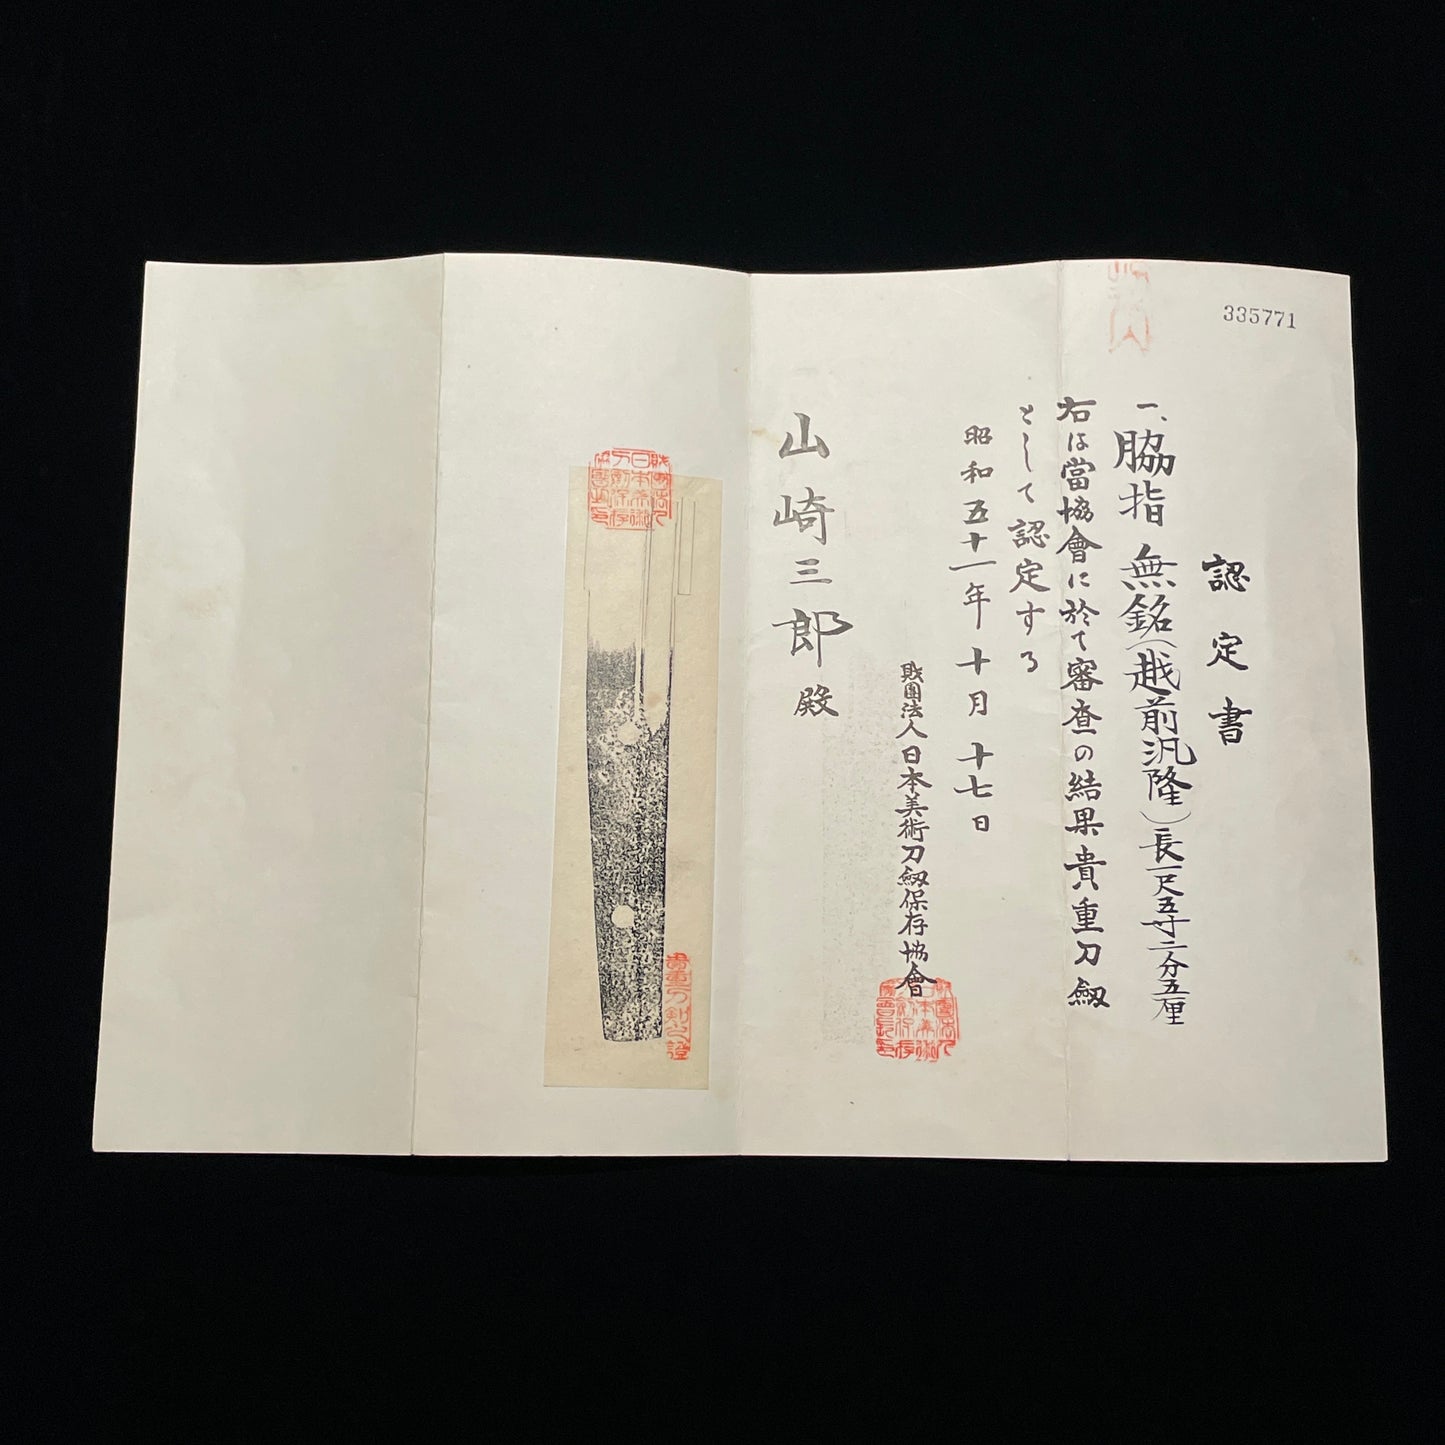 335771
認定書
一、脇指 無銘(越前汎隆)長一尺五寸二分五厘
右は當協會に於て審査の結果貴重刀劔
として認定する
昭和五十一年十月十七日
財團法人日本美術刀劔保存協會
山崎三郎殿
貴重刀剣之證